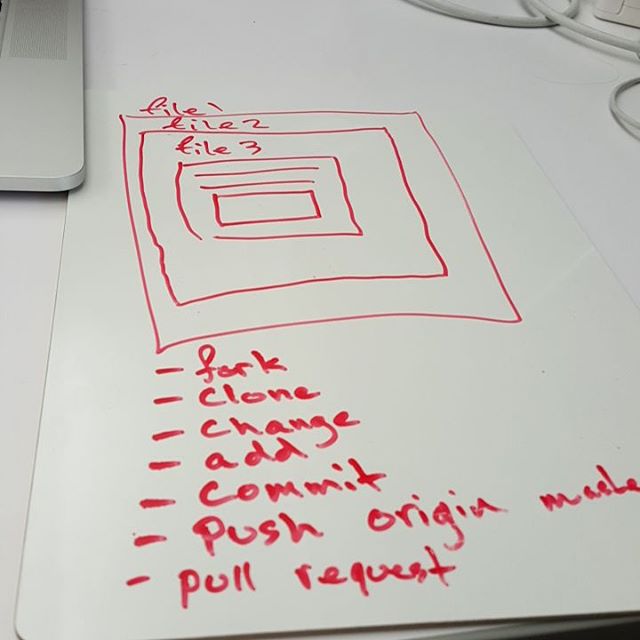 file1
file2
file3
- fork
- clone
- change
- add
- commit
- push origin maste
- pull request